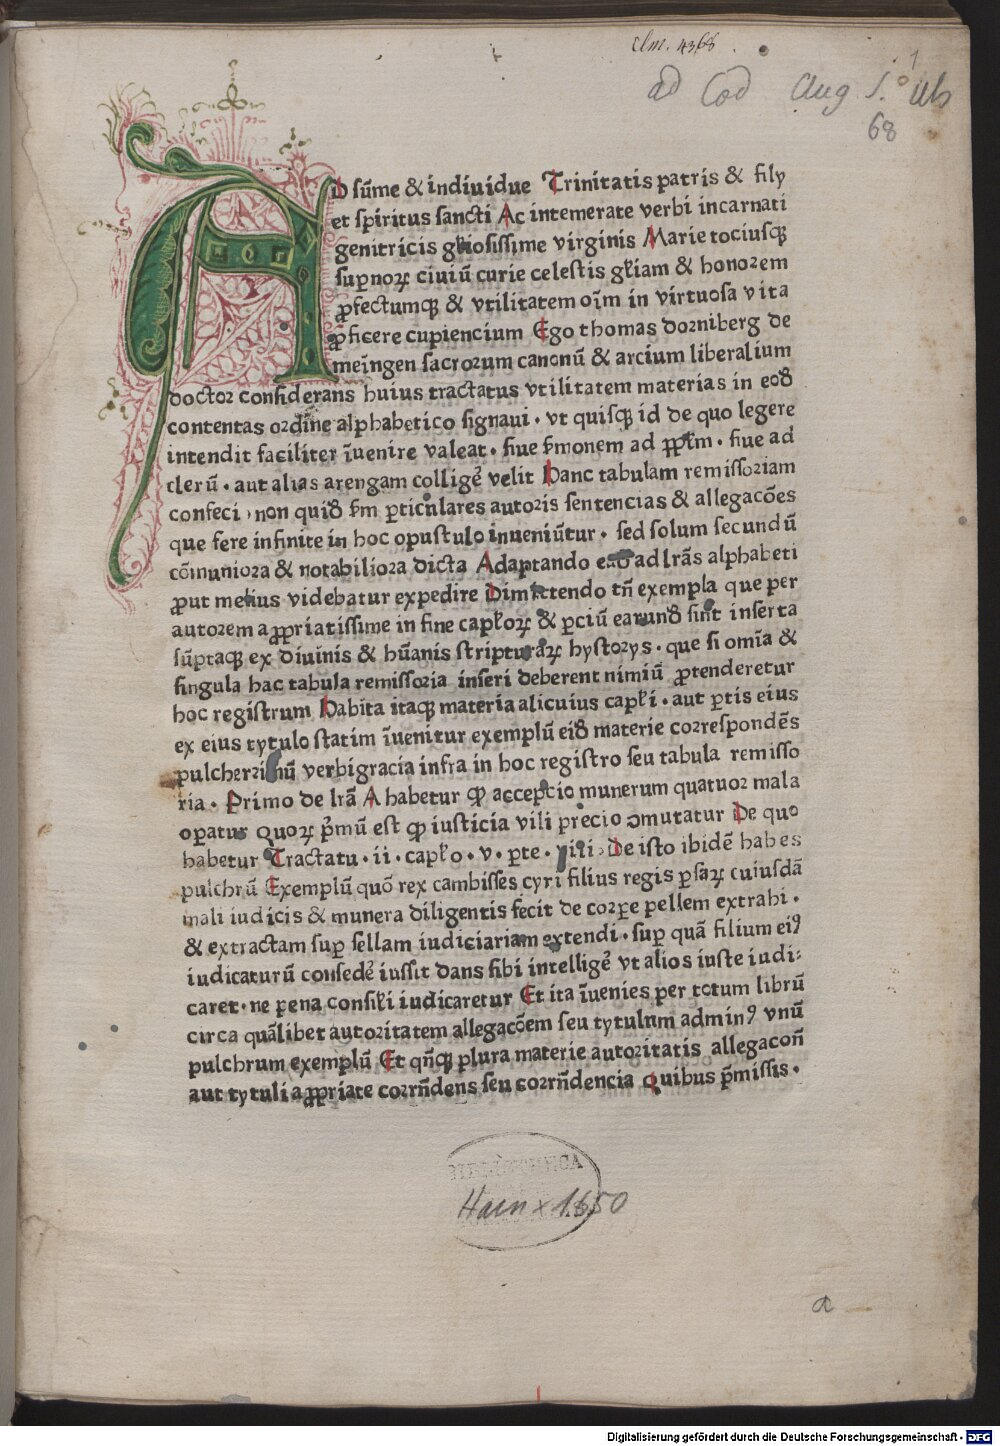 clm. 4368.
1
ad Cod Aug S. Ulr
68
AD sūme & indiuidue Trinitatis patris & filÿ
et spiritus sancti Ac intemerate verbi incarnati
genitricis gl̄iosissime virginis Marie tociusqꝫ
suꝑnoꝝ ciuiū curie celestis gl̄iam & honorem
ꝓfectumqꝫ & vtilitatem oīm in virtuosa vita
ꝓficere cupiencium Ego thomas dorniberg de
meīngen sacrorum canonū & arcium liberalium
doctor considerans huius tractatus vtilitatem materias in eod̄
contentas ordine alphabetico signaui · vt quisqꝫ id de quo legere
intendit faciliter īuenire valeat · siue s̄monem ad ꝓpl̄m · siue ad
clerū · aut alias arengam collige᷒ velit Hanc tabulam remissoriam
confeci · non quid s̄m ꝑticulares autoris sentencias & allegacōes
que fere infinite in hoc opusculo inueniūtur · sed solum secundū
cōmuniora & notabiliora dicta Adaptando ead̄ ad lr̄as alphabeti
ꝓut melius videbatur expedire Dimittendo tn̄ exempla que per
autorem aꝓpriatissime in fine capl̄oꝝ & ꝑciū earund̄ sunt inserta
sūptaqꝫ ex diuinis & hūanis scripturaꝝ hystorÿs · que si omīa &
singula hac tabula remissoria inseri deberent nimiū ꝓtenderetur
hoc registrum Habita itaqꝫ materia alicuius capl̄i · aut ꝑtis eius
ex eius tytulo statim īuenitur exemplū eid̄ materie correspondēs
pulcherrimū verbigracia infra in hoc registro seu tabula remisso
ria · Primo de lr̄a A habetur ꝙ accepcio munerum quatuor mala
oꝑatur quoꝝ p̄mū est ꝙ iusticia vili precio ꝯmutatur De quo
habetur Tractatu · ii · capl̄o · v · ꝑte · iiii · De isto ibidē habes
pulchrū Exemplū quō rex cambisses cyri filius regis ꝑsaꝝ cuiusdā
mali iudicis & munera diligentis fecit de corꝑe pellem extrahi ·
& extractam suꝑ sellam iudiciariam extendi · suꝑ quā filium eiꝰ
iudicaturū consede᷒ iussit dans sibi intellige᷒ vt alios iuste iudi⸗
caret · ne pena consil̄i iudicaretur Et ita īuenies per totum librū
circa quālibet autoritatem allegacōem seu tytulum adminꝰ vnū
pulchrum exemplū Et qn̄qꝫ plura materie autoritatis allegacon̄
aut tytuli aꝓpriate corrn̄dens seu corrn̄dencia Quibus p̄missis ·
BIBLIOTHECA
Hain x 1650
a
Digitalisierung gefördert durch die Deutsche Forschungsgemeinschaft - DFG